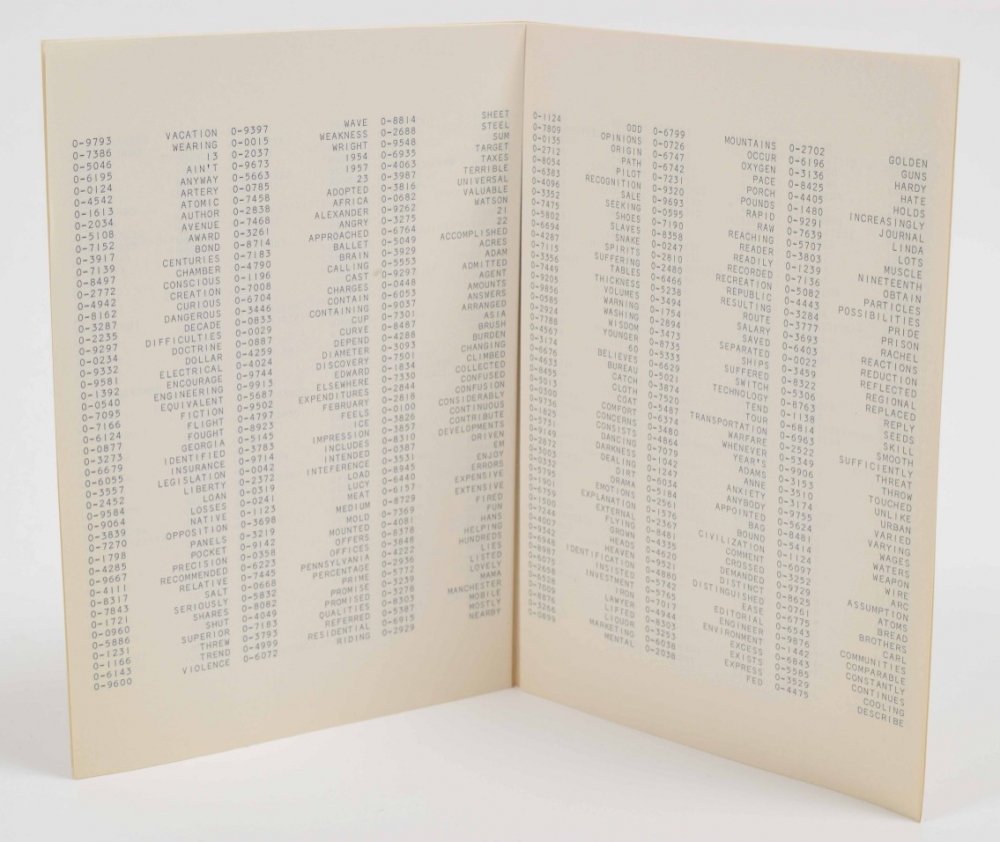 0-9793 VACATION 0-9397 WAVE 0-8814 SHEET
0-7386 WEARING 0-0015 WEAKNESS 0-2688 STEEL
0-5046 13 0-2037 WRIGHT 0-9548 SUM
0-6195 AIN'T 0-9673 1954 0-6935 TARGET
0-0124 ANYWAY 0-5663 1957 0-4063 TAXES
0-4542 ARTERY 0-0785 23 0-3987 TERRIBLE
0-1613 ATOMIC 0-7458 ADOPTED 0-3816 UNIVERSAL
0-2034 AUTHOR 0-2838 AFRICA 0-0682 VALUABLE
0-5108 AVENUE 0-7468 ALEXANDER 0-9262 WATSON
0-7152 AWARD 0-3261 ANGRY 0-3275 21
0-3917 BOND 0-8714 APPROACHED 0-6764 22
0-7139 CENTURIES 0-7183 BALLET 0-5049 ACCOMPLISHED
0-8497 CHAMBER 0-4790 BRAIN 0-3929 ACRES
0-2772 CONSCIOUS 0-1196 CALLING 0-5553 ADAM
0-4942 CREATION 0-7008 CAST 0-9297 ADMITTED
0-8162 CURIOUS 0-6704 CHARGES 0-0448 AGENT
0-3287 DANGEROUS 0-3446 CONTAIN 0-6053 AMOUNTS
0-2235 DECADE 0-0833 CONTAINING 0-9037 ANSWERS
0-9297 DIFFICULTIES 0-0029 CUP 0-7301 ARRANGED
0-0234 DOCTRINE 0-0887 CURVE 0-8487 ASIA
0-9332 DOLLAR 0-4259 DEPEND 0-4288 BRUSH
0-9581 ELECTRICAL 0-4024 DIAMETER 0-3093 BURDEN
0-1392 ENCOURAGE 0-9744 DISCOVERY 0-7501 CHANGING
0-0540 ENGINEERING 0-9913 EDWARD 0-1834 CLIMBED
0-7095 EQUIVALENT 0-5687 ELSEWHERE 0-7330 COLLECTED
0-7166 FICTION 0-9502 EXPENDITURES 0-2844 CONFUSED
0-6124 FLIGHT 0-4797 FEBRUARY 0-2818 CONFUSION
0-0877 FOUGHT 0-8923 FEELS 0-0100 CONSIDERABLY
0-3273 GEORGIA 0-5145 ICE 0-3826 CONTINUOUS
0-6679 IDENTIFIED 0-3783 IMPRESSION 0-3857 CONTRIBUTE
0-6055 INSURANCE 0-9714 INCLUDES 0-8310 DEVELOPMENTS
0-3557 LEGISLATION 0-0042 INTENDED 0-0387 DRIVEN
0-2452 LIBERTY 0-2372 INTEFERENCE 0-3531 EM
0-9584 LOAN 0-0319 LOAD 0-8945 ENJOY
0-9064 LOSSES 0-0241 LUCY 0-6440 ERRORS
0-3839 NATIVE 0-1123 MEAT 0-6157 EXPENSIVE
0-7270 OPPOSITION 0-3698 MEDIUM 0-8729 EXTENSIVE
0-1798 PANELS 0-3219 MOLD 0-7369 FIRED
0-4285 POCKET 0-9142 MOUNTED 0-4081 FUN
0-9667 PRECISION 0-0358 OFFERS 0-8378 HANS
0-4111 RECOMMENDED 0-6223 OFFICES 0-3848 HELPING
0-8317 RELATIVE 0-7445 PENNSYLVANIA 0-4222 HUNDREDS
0-7843 SALT 0-0668 PERCENTAGE 0-2936 LIES
0-1721 SERIOUSLY 0-5832 PRIME 0-5772 LISTED
0-0960 SHARES 0-8082 PROMISE 0-3239 LOVELY
0-5886 SHUT 0-4049 PROMISED 0-3278 MAMA
0-1231 SUPERIOR 0-7183 QUALITIES 0-8303 MANCHESTER
0-1166 THREW 0-3793 REFERRED 0-5387 MOBILE
0-6143 TREND 0-4999 RESIDENTIAL 0-6915 MOSTLY
0-9600 VIOLENCE 0-6072 RIDING 0-2929 NEARBY
0-1124 ODD 0-6799 MOUNTAINS 0-2702 GOLDEN
0-7809 OPINIONS 0-0726 OCCUR 0-6196 GUNS
0-0135 ORIGIN 0-6747 OXYGEN 0-3136 HARDY
0-2712 PATH 0-6742 PACE 0-8425 HATE
0-8054 PILOT 0-7231 PORCH 0-4405 HOLDS
0-6383 RECOGNITION 0-9320 POUNDS 0-1480 INCREASINGLY
0-4096 SALE 0-9693 RAPID 0-9291 JOURNAL
0-3352 SEEKING 0-0595 RAW 0-7639 LINDA
0-7475 SHOES 0-7190 REACHING 0-5707 LOTS
0-5802 SLAVES 0-8358 READER 0-3803 MUSCLE
0-6694 SNAKE 0-0247 READILY 0-1239 NINETEENTH
0-4287 SPIRITS 0-2810 RECORDED 0-7136 OBTAIN
0-7115 SUFFERING 0-2480 RECREATION 0-5082 PARTICLES
0-3356 TABLES 0-6466 REPUBLIC 0-4443 POSSIBILITIES
0-7449 THICKNESS 0-5238 RESULTING 0-3284 PRIDE
0-9205 VOLUMES 0-3494 ROUTE 0-3777 PRISON
0-9856 WARNING 0-1754 SALARY 0-3693 RACHEL
0-0585 WASHING 0-2894 SAVED 0-6403 REACTIONS
0-2924 WISDOM 0-3473 SEPARATED 0-0022 REDUCTION
0-7788 YOUNGER 0-8735 SHIPS 0-3459 REFLECTED
0-4567 60 0-5333 SUFFERED 0-8322 REGIONAL
0-3174 BELIEVES 0-6629 SWITCH 0-5306 REPLACED
0-6676 BUREAU 0-5021 TECHNOLOGY 0-8763 REPLY
0-4633 CATCH 0-3874 TEND 0-1138 SEEDS
0-8455 CLOTH 0-7520 TOUR 0-6814 SKILL
0-5013 COAT 0-5487 TRANSPORTATION 0-6963 SMOOTH
0-0500 COMFORT 0-6374 WARFARE 0-2522 SUFFICIENTLY
0-9736 CONCERNS 0-3480 WHENEVER 0-5349 THREAT
0-1825 CONSISTS 0-4864 YEAR'S 0-9906 THROW
0-5731 DANCING 0-7079 ADAMS 0-3153 TOUCHED
0-9149 DARKNESS 0-1042 ANNE 0-3510 UNLIKE
0-2872 DEALING 0-1247 ANXIETY 0-3174 URBAN
0-3303 DIRT 0-6034 ANYBODY 0-9755 VARIED
0-0032 DRAMA 0-5184 APPOINTED 0-5624 VARYING
0-5795 EMOTIONS 0-2561 BAG 0-8481 WAGES
0-1901 EXPLANATION 0-1576 BOUND 0-5414 WATERS
0-6759 EXTERNAL 0-2367 CIVILIZATION 0-1124 WEAPON
0-1500 FLYING 0-8481 COMMENT 0-6097 WIRE
0-7244 GROWN 0-4335 CROSSED 0-3252 ARC
0-4007 HEADS 0-4620 DEMANDED 0-9729 ASSUMPTION
0-9342 HEAVEN 0-9521 DISTINCT 0-8625 ATOMS
0-6948 IDENTIFICATION 0-4880 DISTINGUISHED 0-0761 BREAD
0-8987 INSISTED 0-0742 EASE 0-6775 BROTHERS
0-6075 INVESTMENT 0-5765 EDITORIAL 0-6543 CARL
0-2658 IRON 0-7017 ENGINEER 0-9876 COMMUNITIES
0-5528 LAWYER 0-4494 ENVIRONMENT 0-1442 COMPARABLE
0-3009 LIFTED 0-8303 EXCESS 0-6843 CONSTANTLY
0-8836 LIQUOR 0-3253 EXISTS 0-5585 CONTINUES
0-3266 MARKETING 0-6038 EXPRESS 0-3529 COOLING
0-0695 MENTAL 0-2038 FED 0-4475 DESCRIBE